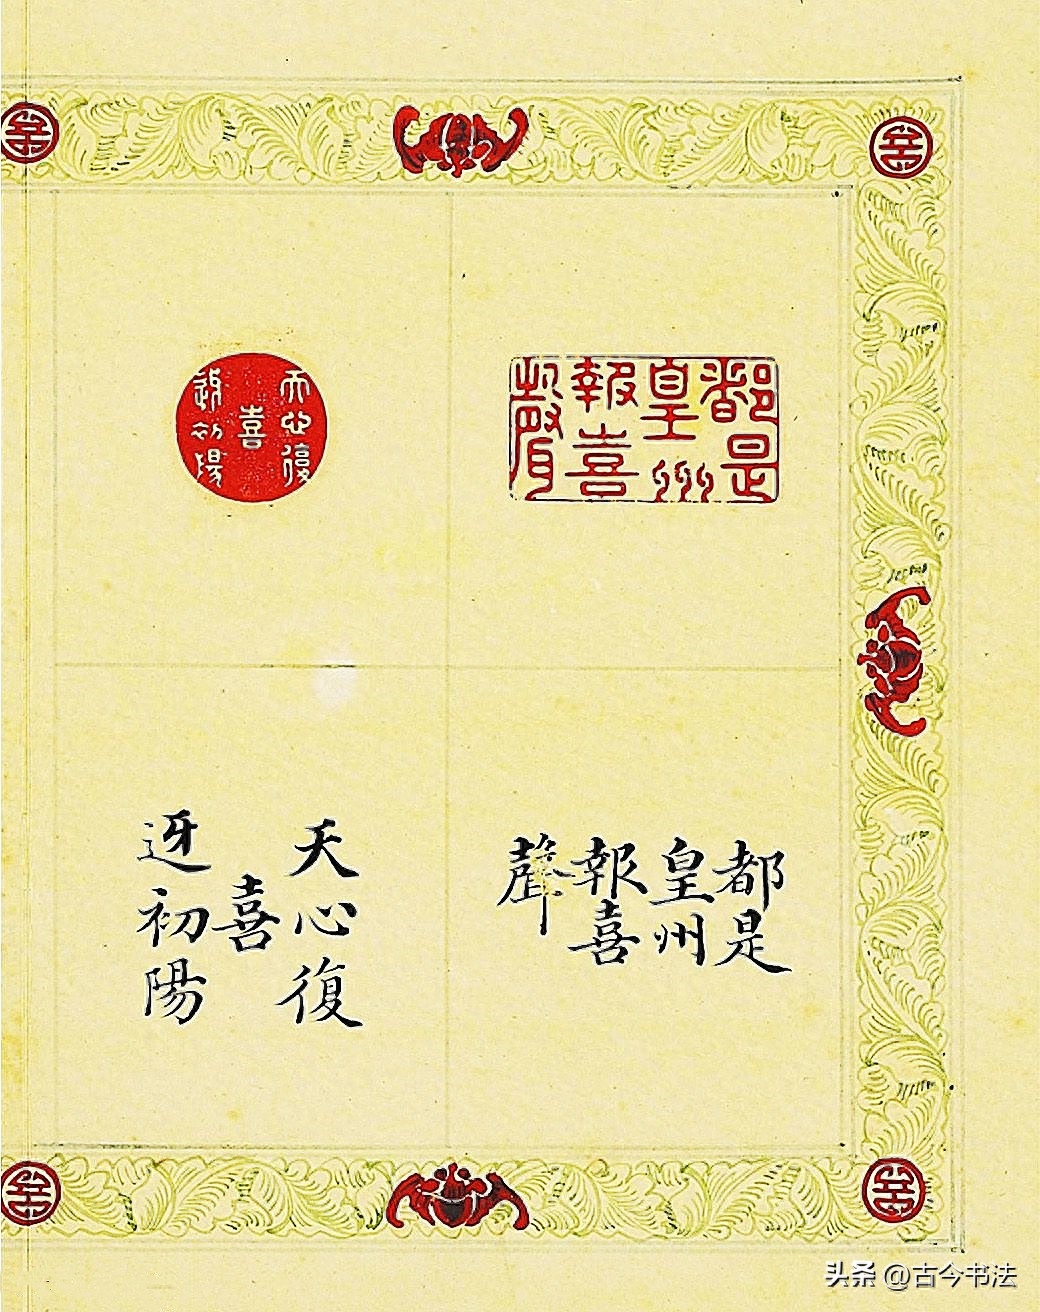 都是
皇州
報喜
聲
天心復
喜
迓初陽
都是
皇州
報喜
聲
天心復
喜
迓初陽
头条 @古今书法